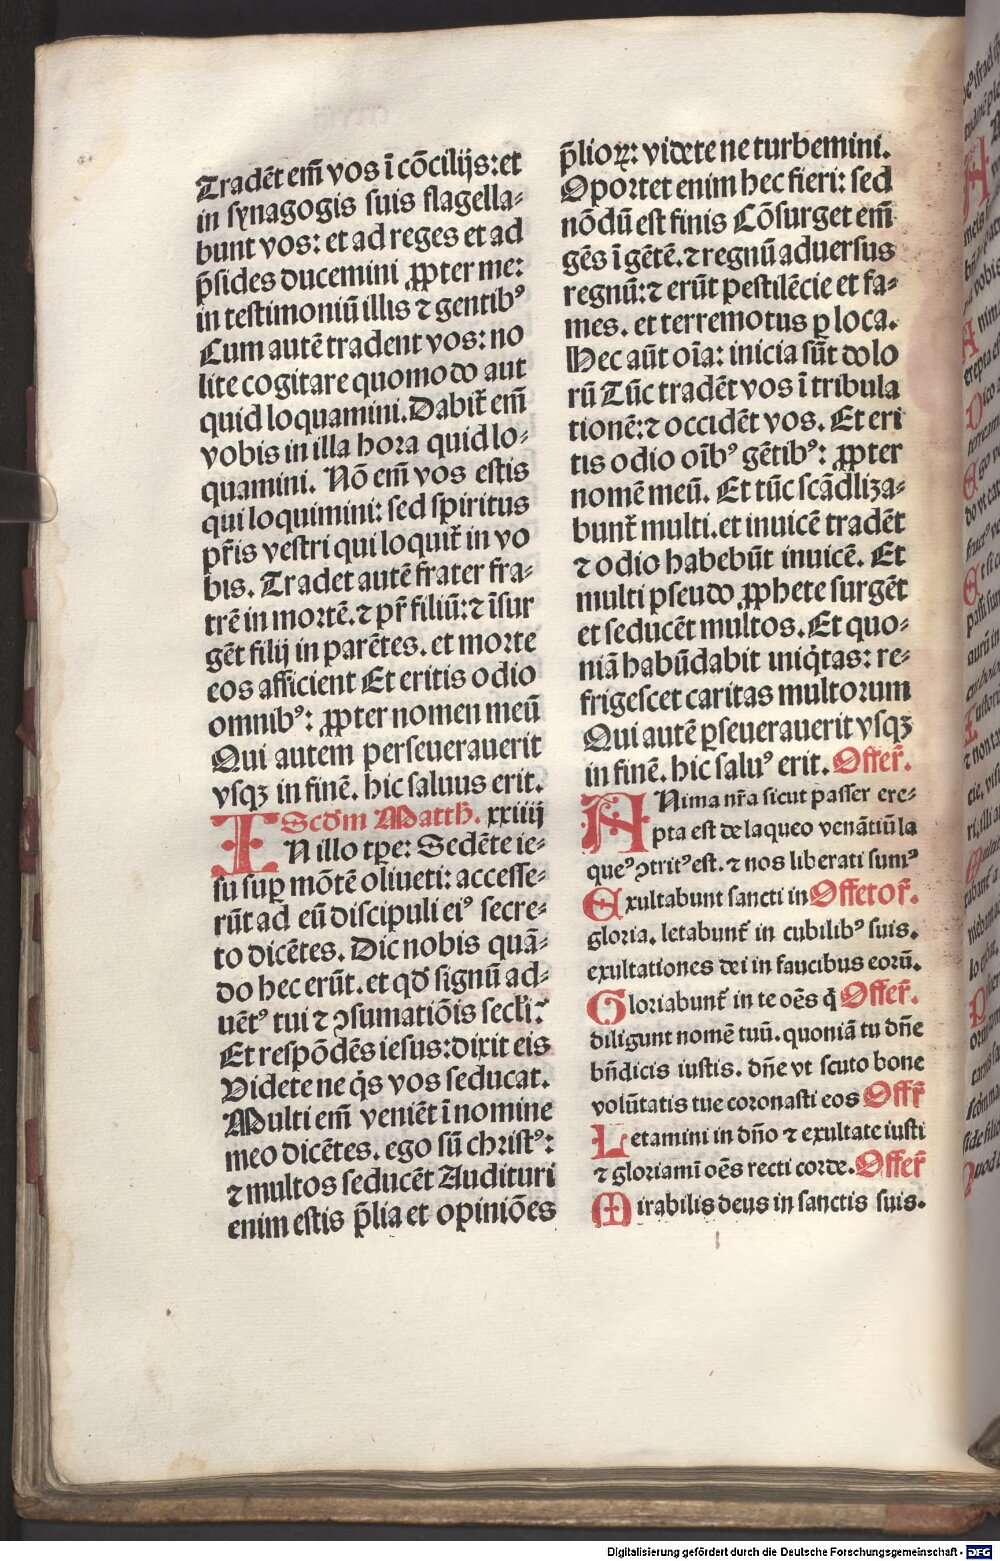 Tradēt em̄ vos ī cōcilijs: et
in synagogis suis flagella-
bunt vos: et ad reges et ad
p̄sides ducemini ꝓpter me:
in testimoniū illis ⁊ gentibꝰ
Cum autē tradent vos: no
lite cogitare quomodo aut
quid loquamini. Dabit̄ em̄
vobis in illa hora quid lo-
quamini. Nō em̄ vos estis
qui loquimini: sed spiritus
pr̄is vestri qui loquit̄ in vo
bis. Tradet autē frater fra-
trē in mortē. ⁊ pr̄ filiū: ⁊ īsur
gēt filij in parētes. et morte
eos afficient Et eritis odio
omnibꝰ: ꝓpter nomen meū
Qui autem perseuerauerit
vsqꝫ in finē. hic saluus erit.
Scd̄m Matth̄. xxiiij
IN illo tꝑe: Sedēte ie-
su suꝑ mōtē oliueti: accesse-
rūt ad eū discipuli eiꝰ secre-
to dicētes. Dic nobis quā-
do hec erūt. et qd̄ signū ad-
uētꝰ tui ⁊ ꝯsumatiōis secl̄i?
Et respōdēs iesus: dixit eis
Videte ne q̇s vos seducat.
Multi em̄ veniēt ī nomine
meo dicētes. ego sū christꝰ:
⁊ multos seducēt Audituri
enim estis p̄lia et opiniōes
p̄lioꝝ: videte ne turbemini.
Oportet enim hec fieri: sed
nōdū est finis Cōsurget em̄
gēs ī gētē. ⁊ regnū aduersus
regnū: ⁊ erūt pestilēcie et fa-
mes. et terremotus ꝑ loca.
Hec aūt oīa: inicia sūt dolo
rū Tūc tradēt vos ī tribula
tionē: ⁊ occidēt vos. Et eri
tis odio oībꝰ gētibꝰ: ꝓpter
nomē meū. Et tūc scādliza-
bunt̄ multi. et inuicē tradēt
⁊ odio habebūt inuicē. Et
multi pseudo ꝓphete surgēt
et seducēt multos. Et quo-
niā habūdabit iniq̇tas: re-
frigescet caritas multorum
Qui autē ꝑseuerauerit vsqꝫ
in finē. hic saluꝰ erit. Offer̄.
ANima nr̄a sicut passer ere-
pta est de laqueo venātiū la
queꝰ ꝯtritꝰ est. ⁊ nos liberati sumꝰ
Exultabunt sancti in Offetor̄.
gloria. letabunt̄ in cubilibꝰ suis.
exultationes dei in faucibus eorū.
Gloriabunt̄ in te oēs q̇ Offer̄.
diligunt nomē tuū. quoniā tu dn̄e
bn̄dicis iustis. dn̄e vt scuto bone
volūtatis tue coronasti eos Offr̄
Letamini in dn̄o ⁊ exultate iusti
⁊ gloriamī oēs recti corde. Offer̄
Mirabilis deus in sanctis suis.
Digitalisierung gefördert durch die Deutsche Forschungsgemeinschaft - DFG